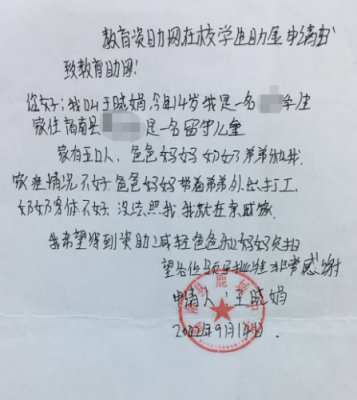 教育资助网在校学生助学金申请书
致教育助网:
您好:我叫于晓娟,今年14岁我是一名学生
家住商南县是一名留守儿童
家有五口人、爸爸妈妈奶奶弟弟和我.
家庭情况不好.爸爸妈妈带着弟弟外出打工
奶奶身体不好.没法照我.我就在亲戚家.
我希望得到资助.减轻爸爸和妈妈负担
望各位领导批准非常感谢
申请人:王晓娟
2022年9月14日.